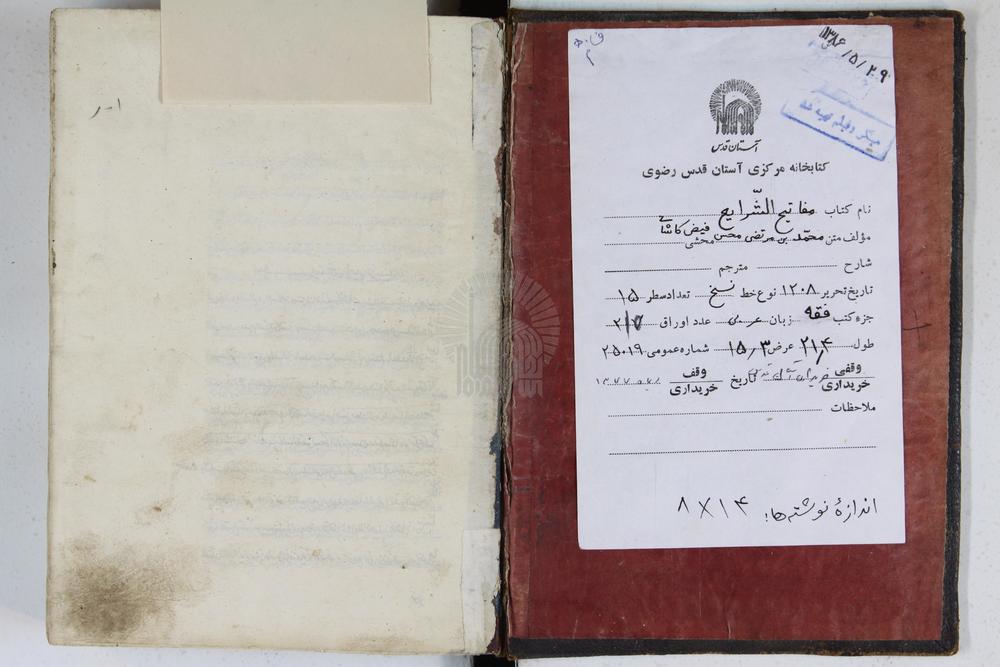 ۱۳۸۶/۵/۲۹
میکروفیلم تهیه شد
آستان قدس
کتابخانه مرکزی آستان قدس رضوی
نام کتاب مفاتیح الشّرایع
مؤلف متن محمّد بن مرتضی محسن فیض کاشانی محشی
شارح مترجم
تاریخ تحریر ۱۲۰۸ نوع خط نسخ تعداد سطر ۱۵
جزء کتب فقه زبان عربی عدد اوراق ۲۱۷
طول ۲۱٫۴ عرض ۱۵٫۳ شماره عمومی ۲۵۰۱۹
وقفی خریداری تاریخ وقف خریداری
ملاحظات
اندازهٔ نوشته‌ها: ۱۴ X ۸